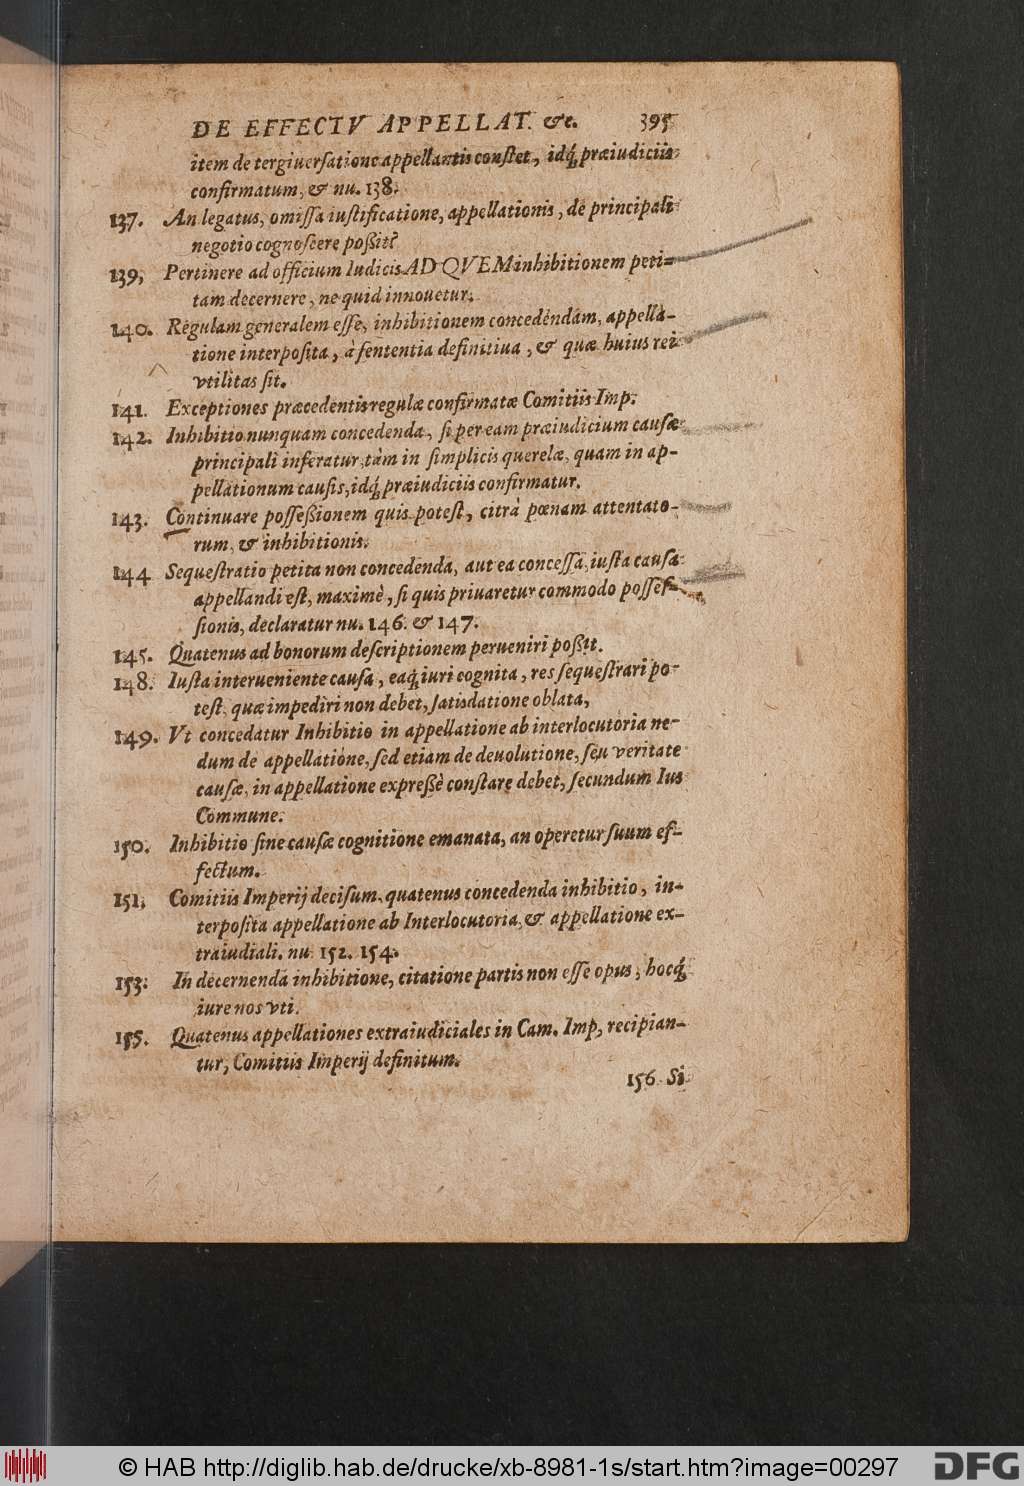 DE EFFECTV APPELLAT. &c. 395
item de tergiuerſatione appellantis conſtet, idq́; præiudiciis
confirmatum, & nu. 138.
137. An legatus, omiſſa iuſtificatione, appellationis, de principali
negotio cognoſcere poßit?
139, Pertinere ad officium Iudicis AD QVEM inhibitionem peti-
tam decernere, ne quid innouetur.
140. Regulam generalem eſſe, inhibitionem concedendam, appella-
tione interpoſita, à ſententia definitiua, & quæ huius rei
vtilitas ſit.
141. Exceptiones præcedentis regulæ confirmatæ Comitiis Imp.
142. Inhibitio nunquam concedenda, ſi per eam præiudicium cauſæ
principali inferatur, tàm in ſimplicis querelæ, quam in ap-
pellationum cauſis, idq́; præiudiciis confirmatur.
143. Continuare poſſeßionem quis poteſt, citrà pœnam attentato-
rum, & inhibitionis.
144 Sequeſtratio petita non concedenda, aut ea conceſſa, iuſta cauſa
appellandi eſt, maximè, ſi quis priuaretur commodo poſſeſ-
ſionis, declaratur nu. 146. & 147.
145. Quatenus ad bonorum deſcriptionem perueniri poßit.
148. Iuſta interueniente cauſa, eaq́; iuri cognita, res ſequeſtrari po-
teſt, quæ impediri non debet, ſatisdatione oblata,
149. Vt concedatur Inhibitio in appellatione ab interlocutoria ne-
dum de appellatione, ſed etiam de deuolutione, ſeu veritate
cauſæ, in appellatione expreßè conſtare debet, ſecundum Ius
Commune.
150. Inhibitio ſine cauſæ cognitione emanata, an operetur ſuum ef-
fectum.
151, Comitiis Imperij deciſum, quatenus concedenda inhibitio, in-
terpoſita appellatione ab Interlocutoria, & appellatione ex-
traiudiali. nu. 152. 154.
153. In decernenda inhibitione, citatione partis non eſſe opus, hocq́;
iure nos vti.
155. Quatenus appellationes extraiudiciales in Cam. Imp, recipian-
tur, Comitiis Imperij definitum.
156. Si
© HAB http://diglib.hab.de/drucke/xb-8981-1s/start.htm?image=00297
DFG